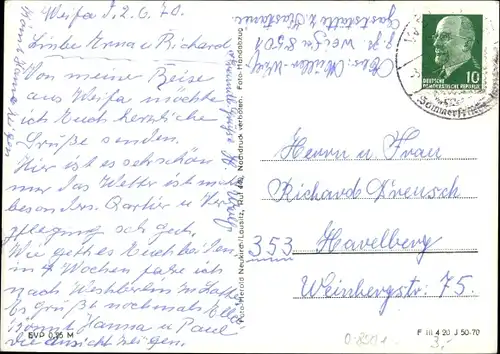 Weifa d. 2.6.70.
Liebe Erna u. Richard
Von meiner Reise
aus Weifa möchte
ich Euch herzliche
Grüße senden.
Hier ist es sehr schön
nur das Wetter ist nicht
besonders. Qartier u. Ver
pflegung sehr gut.
Wie geht es Euch beiden,
in 4 Wochen fahre ich
nach
Es grüßt nochmals Ella
Könnt Hanna u Paul
die Ansicht zeigen.
EVP 0,25 M
Foto-Herold Neukirch/Lausitz, Ruf 446, Nachdruck verboten. Foto-Handabzug
Gaststätte z.
Weifa 8501
DEUTSCHE
DEMOKRATISCHE REPUBLIK
10
Sommerfrische
Herrn u. Frau
Richard Dreusch
353 Havelberg
Weinbergstr. 75.
F III 4 20 J 50-70
3,-